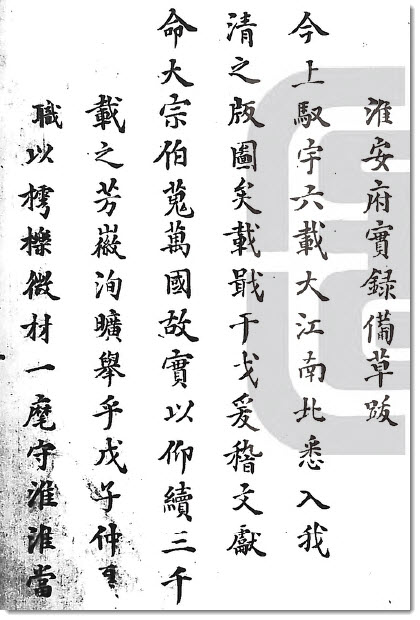 淮安府實録備草跋
今上馭宇六載大江南北悉入我
清之版圖矣載戢干戈爰稽文獻
命大宗伯蒐萬國故實以仰續三千
載之芳徽洵曠舉乎戊子仲
職以樗櫟微材一麾守淮淮當